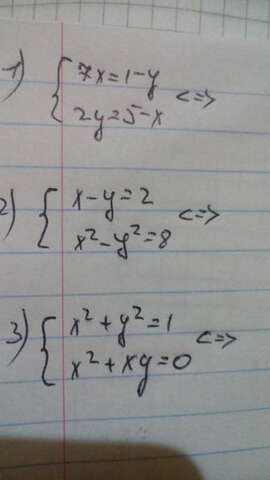 1) { 7x=1-y
2y=5-x <=>
2) { x-y=2 <=>
x²-y²=8
3) { x²+y²=1 <=>
x²+xy=0